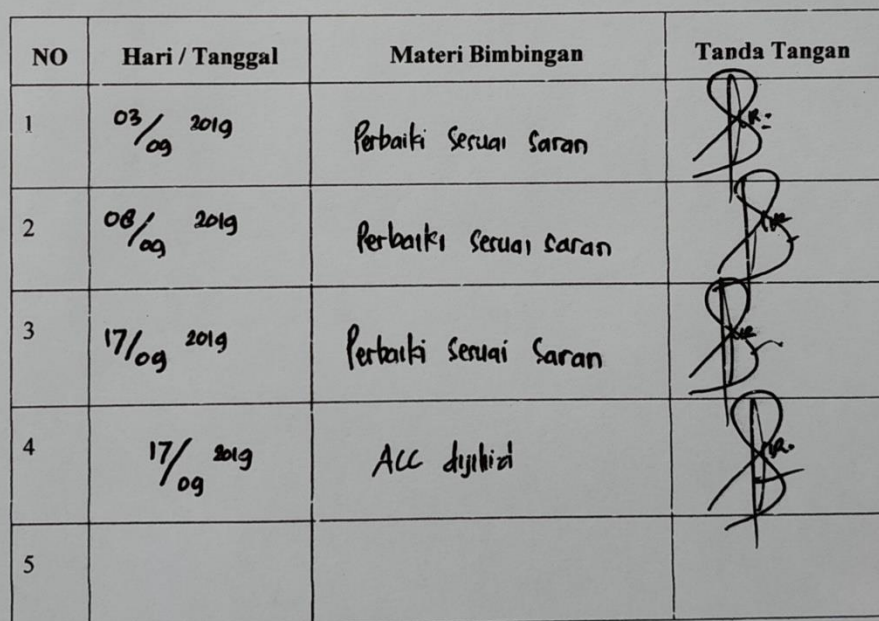 NO Hari / Tanggal Materi Bimbingan Tanda Tangan
1 03/09 2019 Perbaiki Sesuai Saran
2 08/09 2019 Perbaiki sesuai saran
3 17/09 2019 Perbaiki Sesuai Saran
4 17/09 2019 ACC dijilid
5